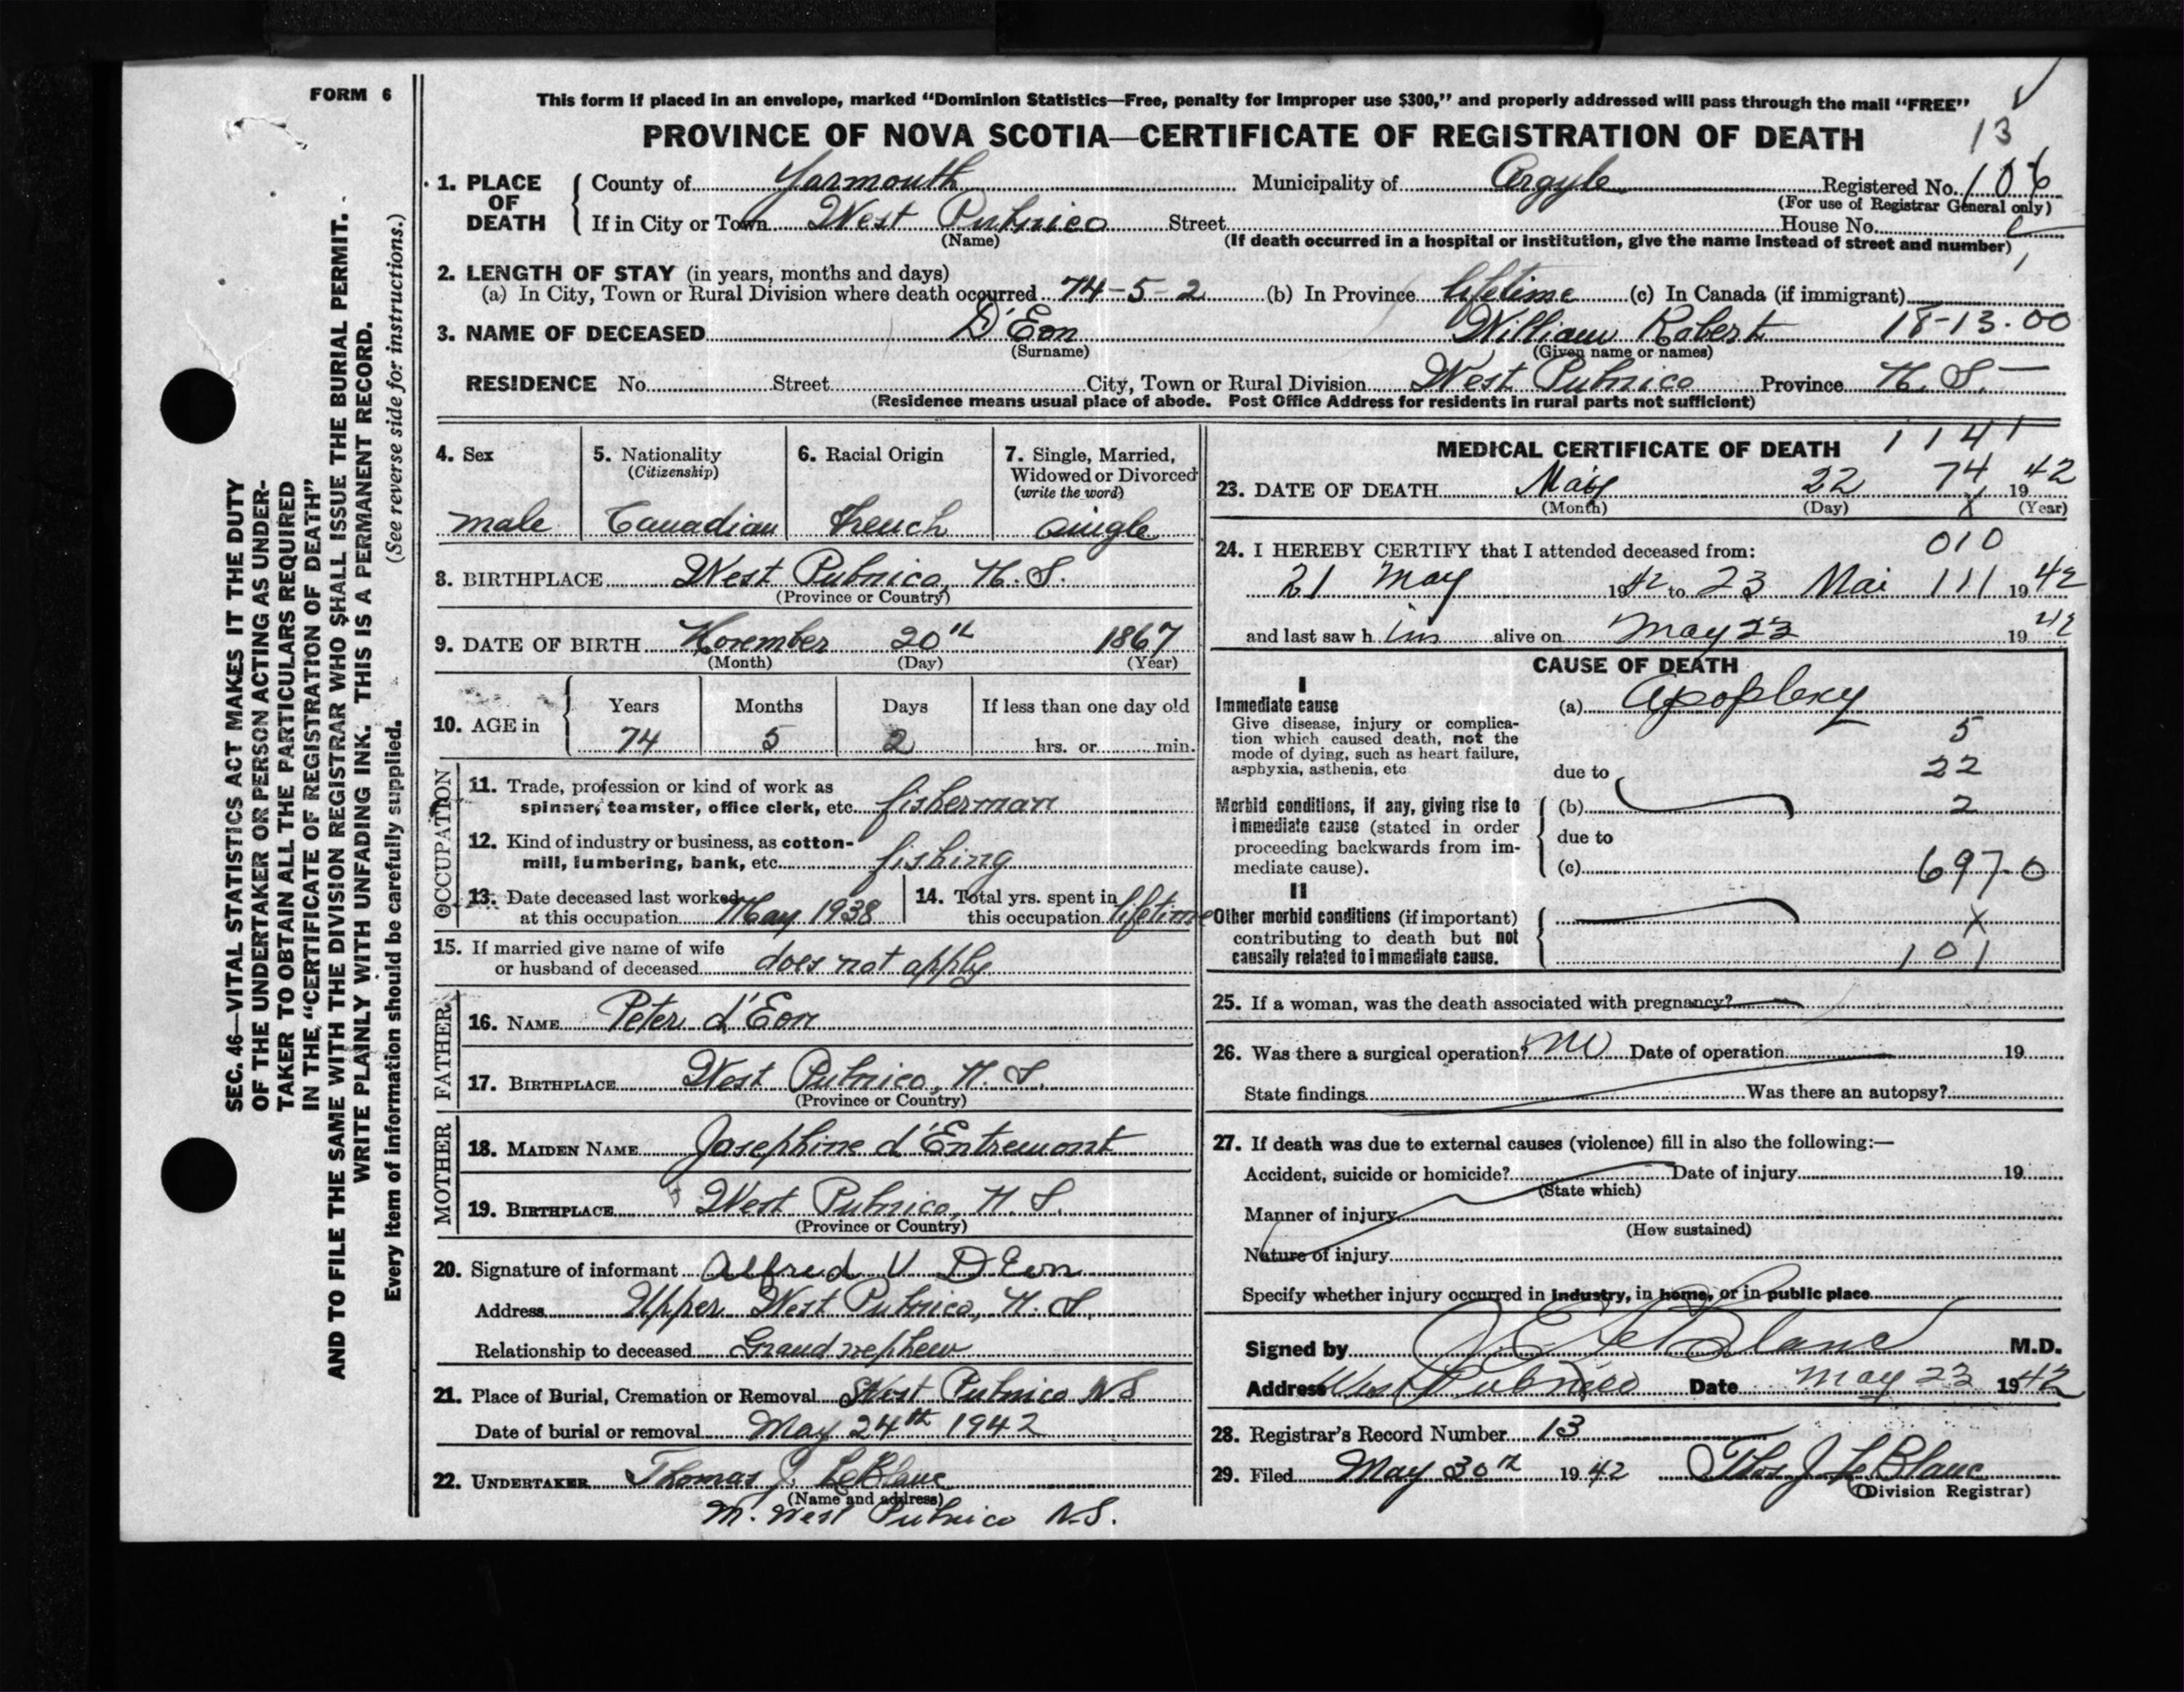 FORM 6
This form if placed in an envelope, marked “Dominion Statistics—Free, penalty for improper use $300,” and properly addressed will pass through the mail “FREE”
PROVINCE OF NOVA SCOTIA—CERTIFICATE OF REGISTRATION OF DEATH
13
SEC. 46—VITAL STATISTICS ACT MAKES IT THE DUTY
OF THE UNDERTAKER OR PERSON ACTING AS UNDER-
TAKER TO OBTAIN ALL THE PARTICULARS REQUIRED
IN THE “CERTIFICATE OF REGISTRATION OF DEATH”
AND TO FILE THE SAME WITH THE DIVISION REGISTRAR WHO SHALL ISSUE THE BURIAL PERMIT.
WRITE PLAINLY WITH UNFADING INK. THIS IS A PERMANENT RECORD.
Every item of information should be carefully supplied. (See reverse side for instructions.)
1. PLACE OF DEATH County of Yarmouth Municipality of Argyle Registered No. 106
(For use of Registrar General only)
If in City or Town West Pubnico Street House No.
(Name) (If death occurred in a hospital or institution, give the name instead of street and number)
2. LENGTH OF STAY (in years, months and days)
(a) In City, Town or Rural Division where death occurred 74-5-2 (b) In Province lifetime (c) In Canada (if immigrant)
3. NAME OF DECEASED D'Eon William Robert 18-13.00
(Surname) (Given name or names)
RESIDENCE No. Street City, Town or Rural Division West Pubnico Province N. S.
(Residence means usual place of abode. Post Office Address for residents in rural parts not sufficient)
4. Sex 5. Nationality 6. Racial Origin 7. Single, Married,
(Citizenship) Widowed or Divorced
(write the word)
male Canadian French single
8. BIRTHPLACE West Pubnico, N. S.
(Province or Country)
9. DATE OF BIRTH November 20th 1867
(Month) (Day) (Year)
10. AGE in Years Months Days If less than one day old
74 5 2 hrs. or min.
OCCUPATION
11. Trade, profession or kind of work as
spinner, teamster, office clerk, etc. fisherman
12. Kind of industry or business, as cotton-
mill, lumbering, bank, etc. fishing
13. Date deceased last worked 14. Total yrs. spent in
at this occupation May 1938 this occupation lifetime
15. If married give name of wife
or husband of deceased does not apply
FATHER
16. NAME Peter d'Eon
17. BIRTHPLACE West Pubnico, N. S.
(Province or Country)
MOTHER
18. MAIDEN NAME Josephine d'Entremont
19. BIRTHPLACE West Pubnico, N. S.
(Province or Country)
20. Signature of informant Alfred V D Eon
Address Upper West Pubnico, N. S.
Relationship to deceased Grand nephew
21. Place of Burial, Cremation or Removal West Pubnico NS
Date of burial or removal May 24th 1942
22. UNDERTAKER Thomas J. LeBlanc
(Name and address)
M. West Pubnico N.S.
MEDICAL CERTIFICATE OF DEATH 1141
74
23. DATE OF DEATH May 22 1942
(Month) (Day) X (Year)
24. I HEREBY CERTIFY that I attended deceased from: 010
21 May 1942 to 23 Mai 111 1942
and last saw h im alive on May 23 1942
CAUSE OF DEATH
I
Immediate cause (a) Apoplexy
Give disease, injury or complica-
tion which caused death, not the 5
mode of dying, such as heart failure,
asphyxia, asthenia, etc due to 22
Morbid conditions, if any, giving rise to (b) 2
immediate cause (stated in order
proceeding backwards from im- due to
mediate cause). (c) 697-0
II
Other morbid conditions (if important) X
contributing to death but not
causally related to immediate cause. 101
25. If a woman, was the death associated with pregnancy?
26. Was there a surgical operation? no Date of operation 19
State findings Was there an autopsy?
27. If death was due to external causes (violence) fill in also the following:—
Accident, suicide or homicide? Date of injury 19
(State which)
Manner of injury
(How sustained)
Nature of injury
Specify whether injury occurred in industry, in home, or in public place
Signed by J. E. LeBlanc M.D.
Address West Pubnico Date May 23 1942
28. Registrar's Record Number 13
29. Filed May 30th 1942 Thos J LeBlanc
(Division Registrar)